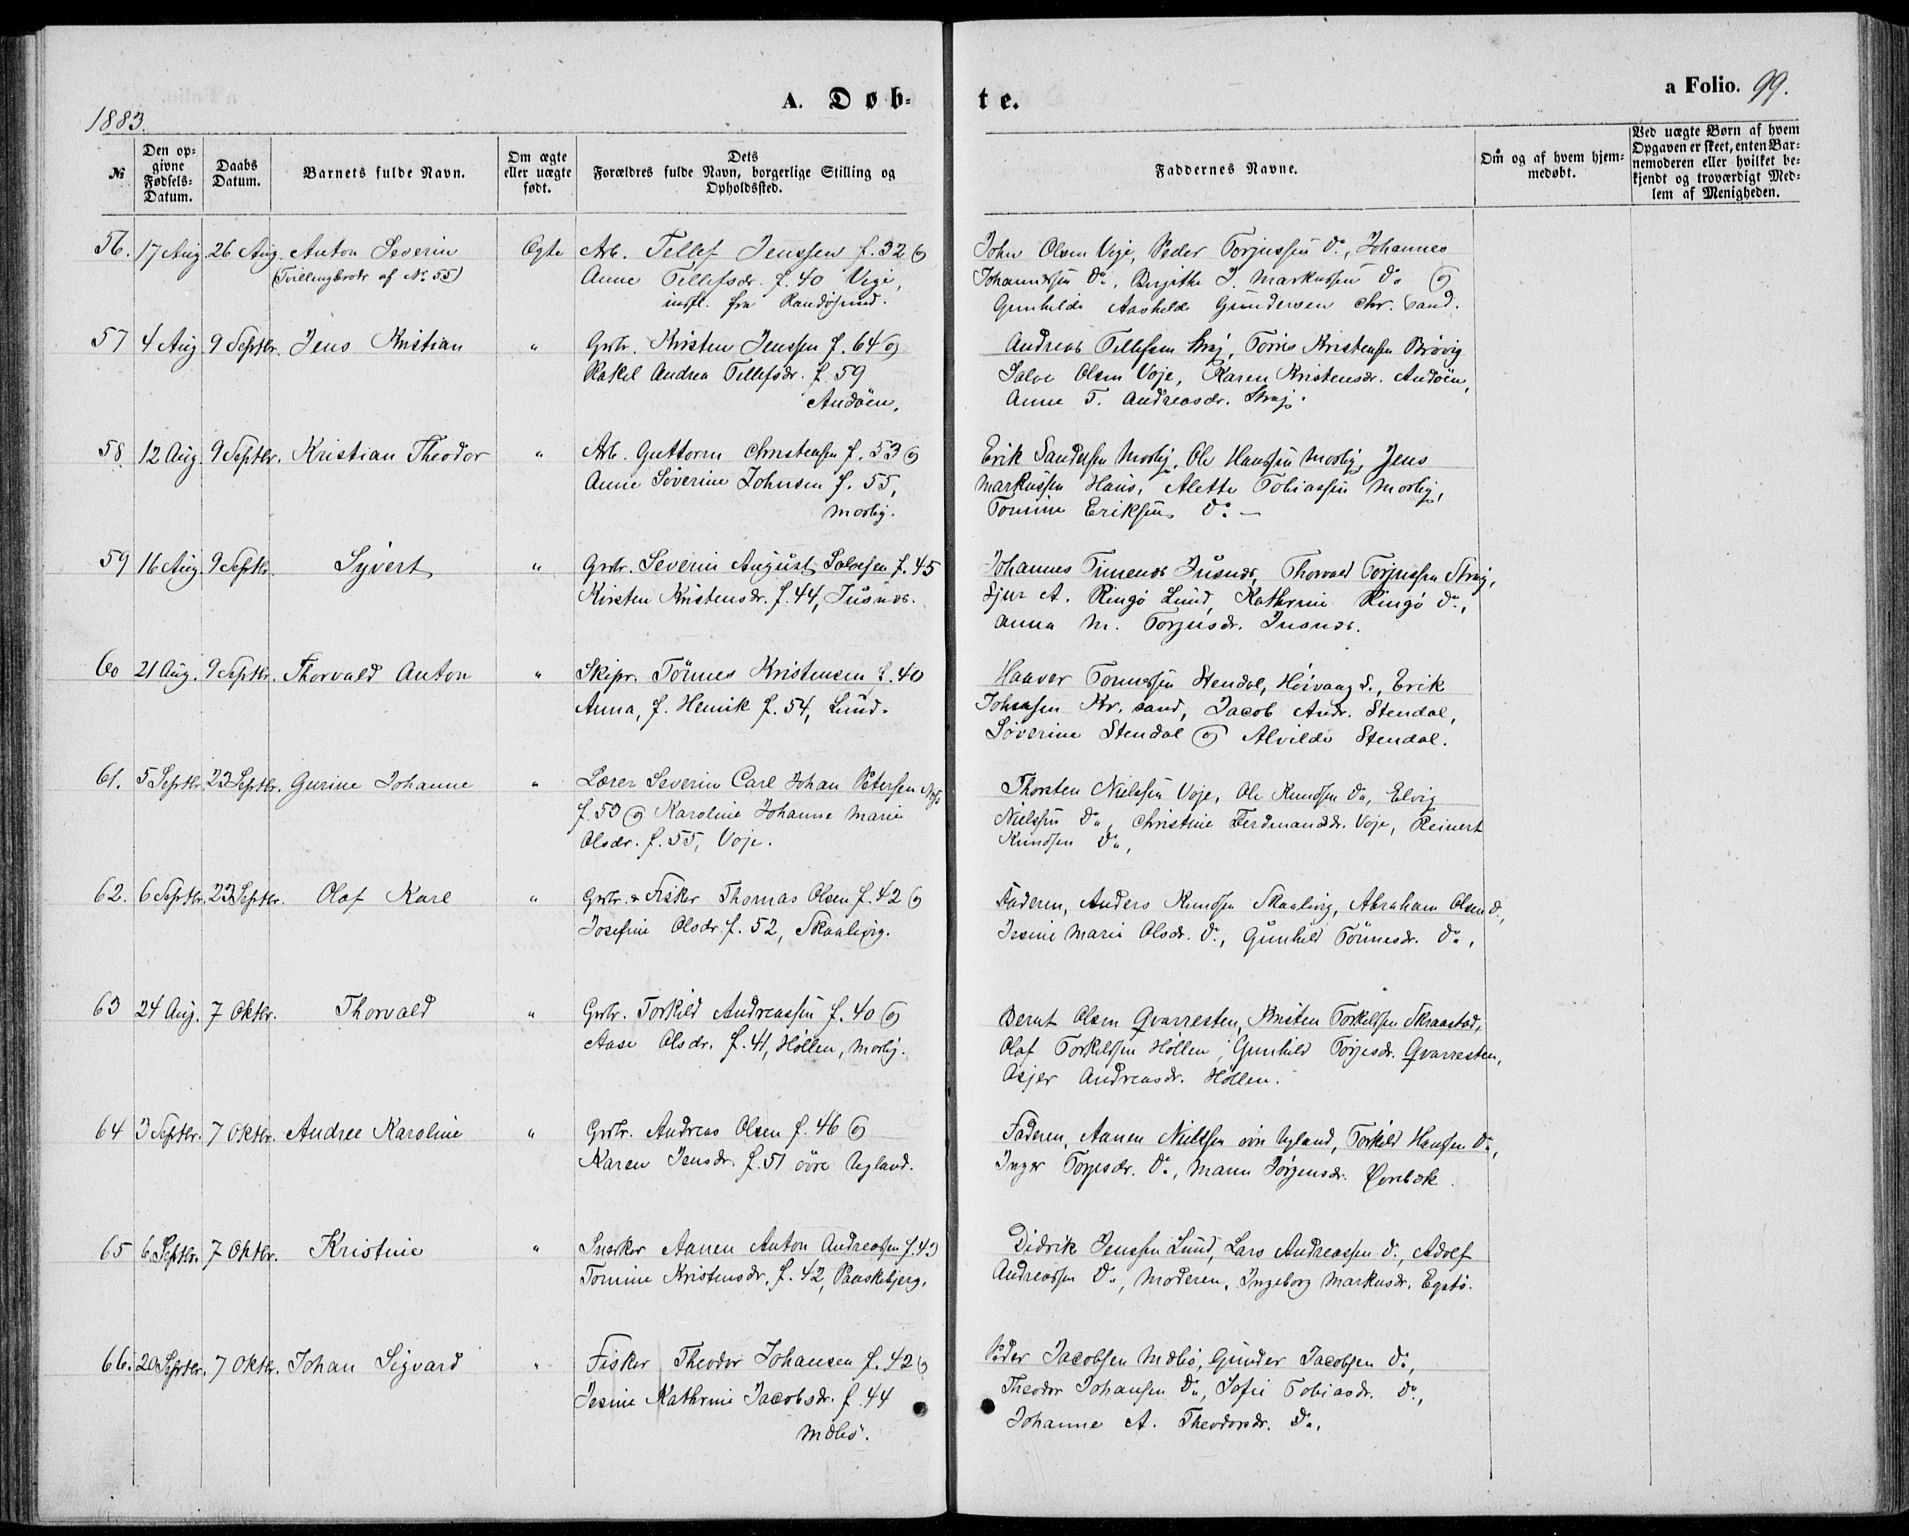 A. Døb-
te.
a Folio. 99.
1883.
№
Den op-
givne
Fødsels-
Datum.
Daabs
Datum.
Barnets fulde Navn.
Om ægte
eller uægte
født.
Dets
Forældres fulde Navn, borgerlige Stilling og
Opholdssted.
Faddernes Navne.
Om og af hvem hjem-
medøbt.
Ved uægte Børn af hvem
Opgaven er skeet, enten Bar-
nemoderen eller hvilket be-
kjendt og troværdigt Med-
lem af Menigheden.
56. 17 Aug 26 Aug. Anton Severin Ægte Arb. Tellef Jenssen f. 32 og
(Tvillingbroder af No. 55) Anne Tellefsdr. f. 40 Veje,
indfl. fra Randøsund.
John Olsen Veje, Peder Torjussen Do., Johannes
Johannessen Do., Birgithe J. Markussen Do. og
Gunhilde Aashilde Gundersen Chr.sand.
57 4 Aug 9 Septbr. Jens Kristian " Grbr. Kristen Jenssen f. 64 og
Rakel Andrea Tellefsdr. f. 59
Andøen.
Andreas Tellefsen Straj, Tørres Kristensen Brøvig
Salve Olsen Voje, Karen Kristensdr. Andøen,
Anne T. Andreasdr. Straj.
58. 12 Aug. 9 Septbr. Kristian Theodor " Arb. Guttorm Christensen f. 53 og
Anne Søverine Johnsen f. 55,
Moslig.
Erik Sandersen Moslig, Ole Hanssen Moslig, Jens
Markussen Haus, Alette Tobiassen Moslig,
Tomine Eriksen Do. —
59 16 Aug. 9 Septbr. Syvert " Grbr. Severin August Salvesen f. 45
Kirsten Kristensdr. f. 44, Jusnes.
Johannes Timenes Jusnes, Thorvald Torjussen Straj,
Sjur A. Ringø Lund, Kathrine Ringø Do.,
Anna M. Torjusdr. Jusnes.
60 21 Aug. 9 Septbr. Thorvald Anton " Skipr. Tønnes Kristensen f. 40
Anna, f. Henrik f. 54, Lund.
Haaver Tønnessen Stendal, Høivaag S., Erik
Johnsen Kr.sand, Jacob Andr. Stendal,
Søverine Stendal og Alvilde Stendal.
61. 5 Septbr. 23 Septbr. Gurine Johanne " Lærer Severin Carl Johan Petersen
f. 53 og Karoline Johanne Marie
Olsdr. f. 55, Voje.
Thorsten Nielssen Voje, Ole Knudsen Do., Elvig
Nielssen Do., Christine Ferdinandsdr. Voje, Reinert
Knudsen Do.,
62. 6 Septbr. 23 Septbr. Olaf Karl " Grbr. & Fisker Thomas Olsen f. 42 og
Josefine Olsdr. f. 52, Skaalevig.
Faderen, Anders Knudsen Skaalevig, Abraham Olsen Do.,
Jesine Marie Olsdr. Do., Gunhild Tønnesdr. Do.,
63 24 Aug. 7 Oktbr. Thorvald " Grbr. Torkild Andreassen f. 40 og
Aase Olsdr. f. 41, Høllen, Moslig.
Bernt Olsen Qvarresten, Kristen Torkelssen Skraastad,
Olaf Torkelssen Høllen, Gunhild Torjesdr. Qvarresten,
Asjer Andreasdr. Høllen.
64 3 Septbr. 7 Oktbr. Andree Karoline " Grbr. Andreas Olsen f. 46 og
Karen Jensdr. f. 51 øvre Ugland.
Faderen, Aanen Nielssen øvre Ugland, Torkild Hanssen Do.,
Inger Torjesdr. Do., Maren Jørgensdr. Øvrebæk.
65 6 Septbr. 7 Oktbr. Kristine " Snerker Aanen Anton Andreassen f. 43
Tomine Kristensdr. f. 42, Paaskebjerg.
Didrik Jenssen Lund, Lars Andreassen Do., Adolf
Andreassen Do., Moderen, Ingeborg Markusdr. Egstø.
66. 20 Septbr. 7 Oktbr. Johan Sigvard " Fisker Theodor Johansen f. 42 og
Jesine Kathrine Jacobsdr. f. 44
Mæbø.
Peder Jacobsen Mæbø, Gunder Jacobsen Do.,
Theodor Johansen Do., Sofie Tobiasdr. Do.,
Johanne A. Theodorsdr. Do.,